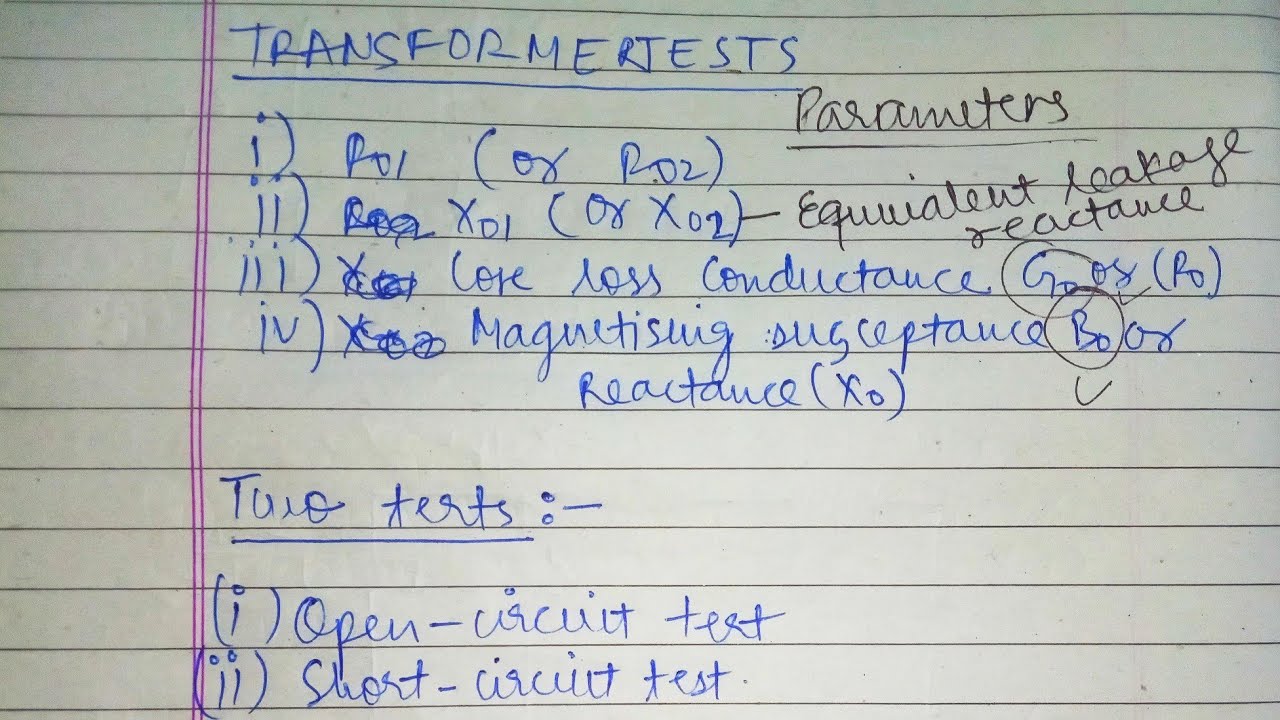 TRANSFORMER TESTS
Parameters
i) R01 (or R02)
ii) X01 (or X02) - Equivalent leakage reactance
iii) Core loss conductance G0 or (R0)
iv) Magnetising susceptance B0 or
Reactance (X0)
Two tests :-
(i) Open-circuit test
(ii) Short-circuit test.